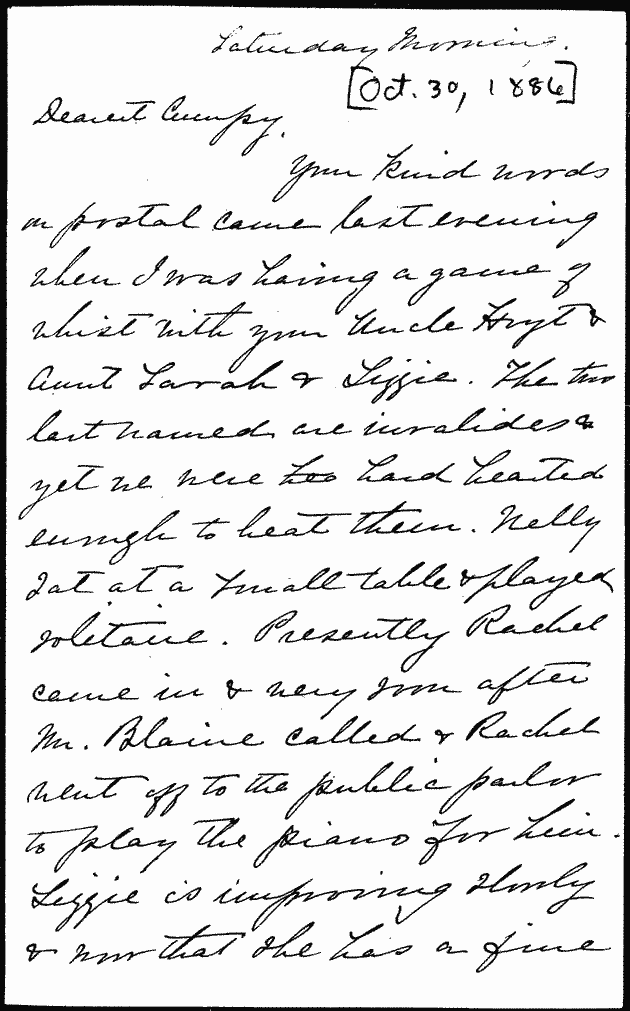 Saturday Morning.
[Oct. 30, 1886]
Dearest Cumpy,
Your kind words
on postal came last evening
when I was having a game of
whist with your Uncle Hoyt &
Aunt Sarah & Lizzie. The two
last named are invalides &
yet we were hard hearted
enough to beat them. Nelly
sat at a small table & played
solitaire. Presently Rachel
came in & very soon after
Mr. Blaine called & Rachel
went off to the public parlor
to play the piano for him.
Lizzie is improving slowly
& now that she has a fine